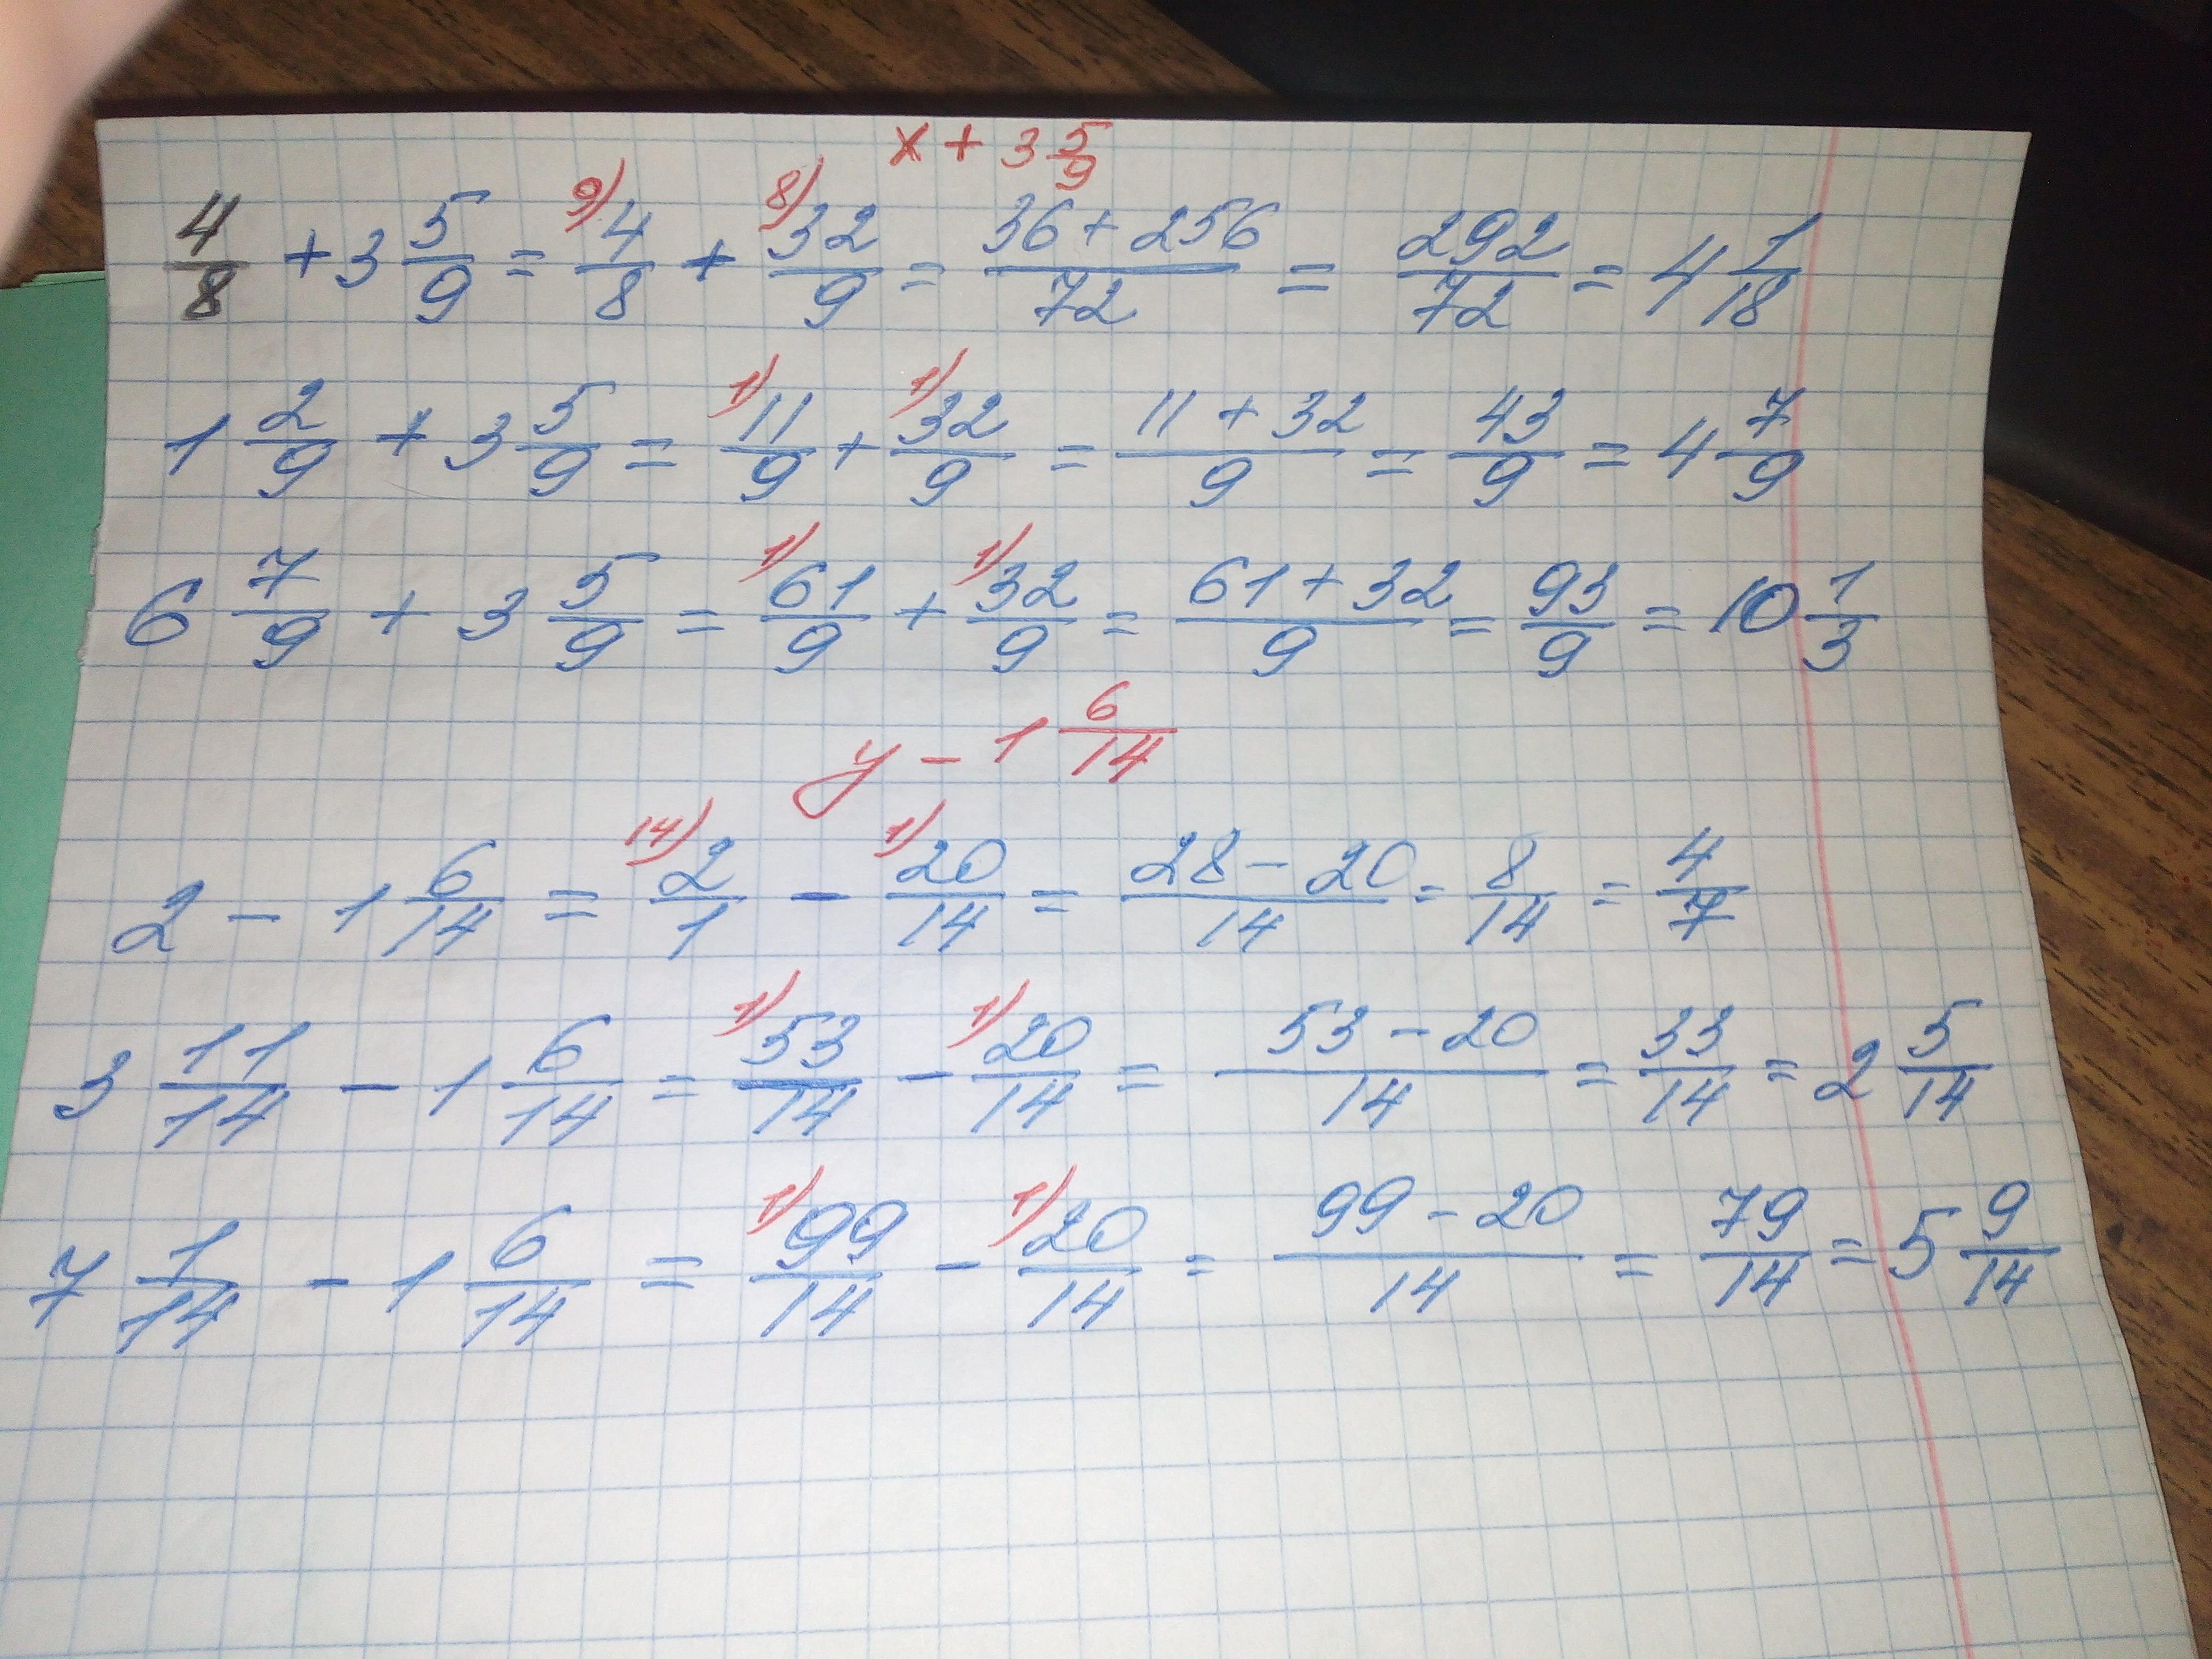 x + 3 5/9
4/8 + 3 5/9 = 9) 4/8 + 8) 32/9 = (36 + 256)/72 = 292/72 = 4 1/18
1 2/9 + 3 5/9 = 1) 11/9 + 1) 32/9 = (11 + 32)/9 = 43/9 = 4 7/9
6 7/9 + 3 5/9 = 1) 61/9 + 1) 32/9 = (61 + 32)/9 = 93/9 = 10 1/3
y - 1 6/14
2 - 1 6/14 = 14) 2/1 - 1) 20/14 = (28 - 20)/14 = 8/14 = 4/7
3 11/14 - 1 6/14 = 1) 53/14 - 1) 20/14 = (53 - 20)/14 = 33/14 = 2 5/14
7 1/14 - 1 6/14 = 1) 99/14 - 1) 20/14 = (99 - 20)/14 = 79/14 = 5 9/14